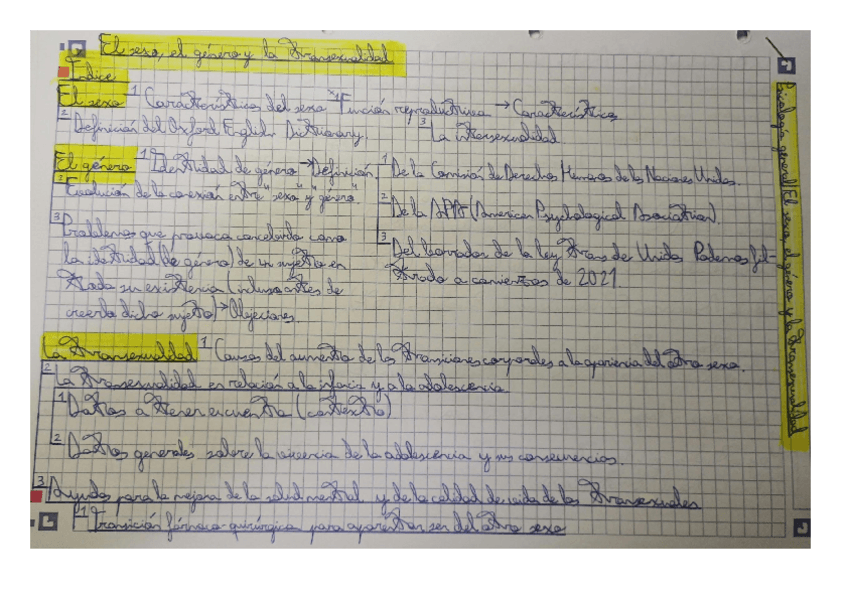 El sexo, el género y la transexualidad
Índice
El sexo 1 Características del sexo Función reproductiva → Características
2 Definición del Oxford English Dictionary. 3 La intersexualidad
El género 1 Identidad de género → Definición 1 De la Comisión de Derechos Humanos de las Naciones Unidas.
2 Evolución de la conexión entre "sexo" y "género"
2 De la APA (American Psychological Asociation)
3 Problemas que provoca concebirlo como
la identidad (de género) de un sujeto en
toda su existencia (incluso antes de
creerlo dicho sujeto) → Objeciones.
3 Del borrador de la ley trans de Unidas Podemos fil-
trado a comienzos de 2021.
La transexualidad 1 Causas del aumento de las transiciones corporales a la apariencia del otro sexo.
2 La transexualidad en relación a la infancia y a la adolescencia
1 Datos a tener en cuenta (contexto)
2 Datos generales sobre la vivencia de la adolescencia y sus consecuencias.
3 Ayudas para la mejora de la salud mental y de la calidad de vida de los transexuales
1 Transición fármaco-quirúrgica para aparentar ser del otro sexo
Psicología general/El sexo, el género y la transexualidad